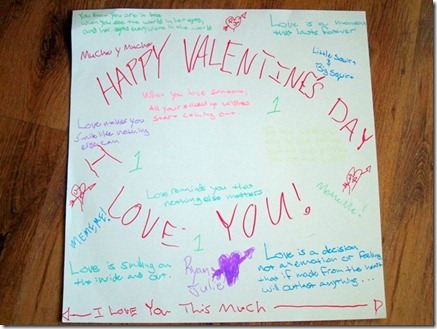 You know you are in love
when you see the world in her eyes,
and her eyes everywhere in the world
Love is a moment
that lasts forever
Mucho y Mucho
Little Squire
& Big Squire
HAPPY VALENTINE'S DAY
When you love someone,
All your saved up wishes
start coming out
Love makes you
smile like nothing
else can
1
1
H
Love reminds you that
nothing else matters
MEMEME!
I LOVE YOU!
1
Love is smiling on
the inside and out.
Ryan
Julie
Love is a decision
not an emotion or feeling
that if made from the heart
will outlast anything...
I Love You This Much